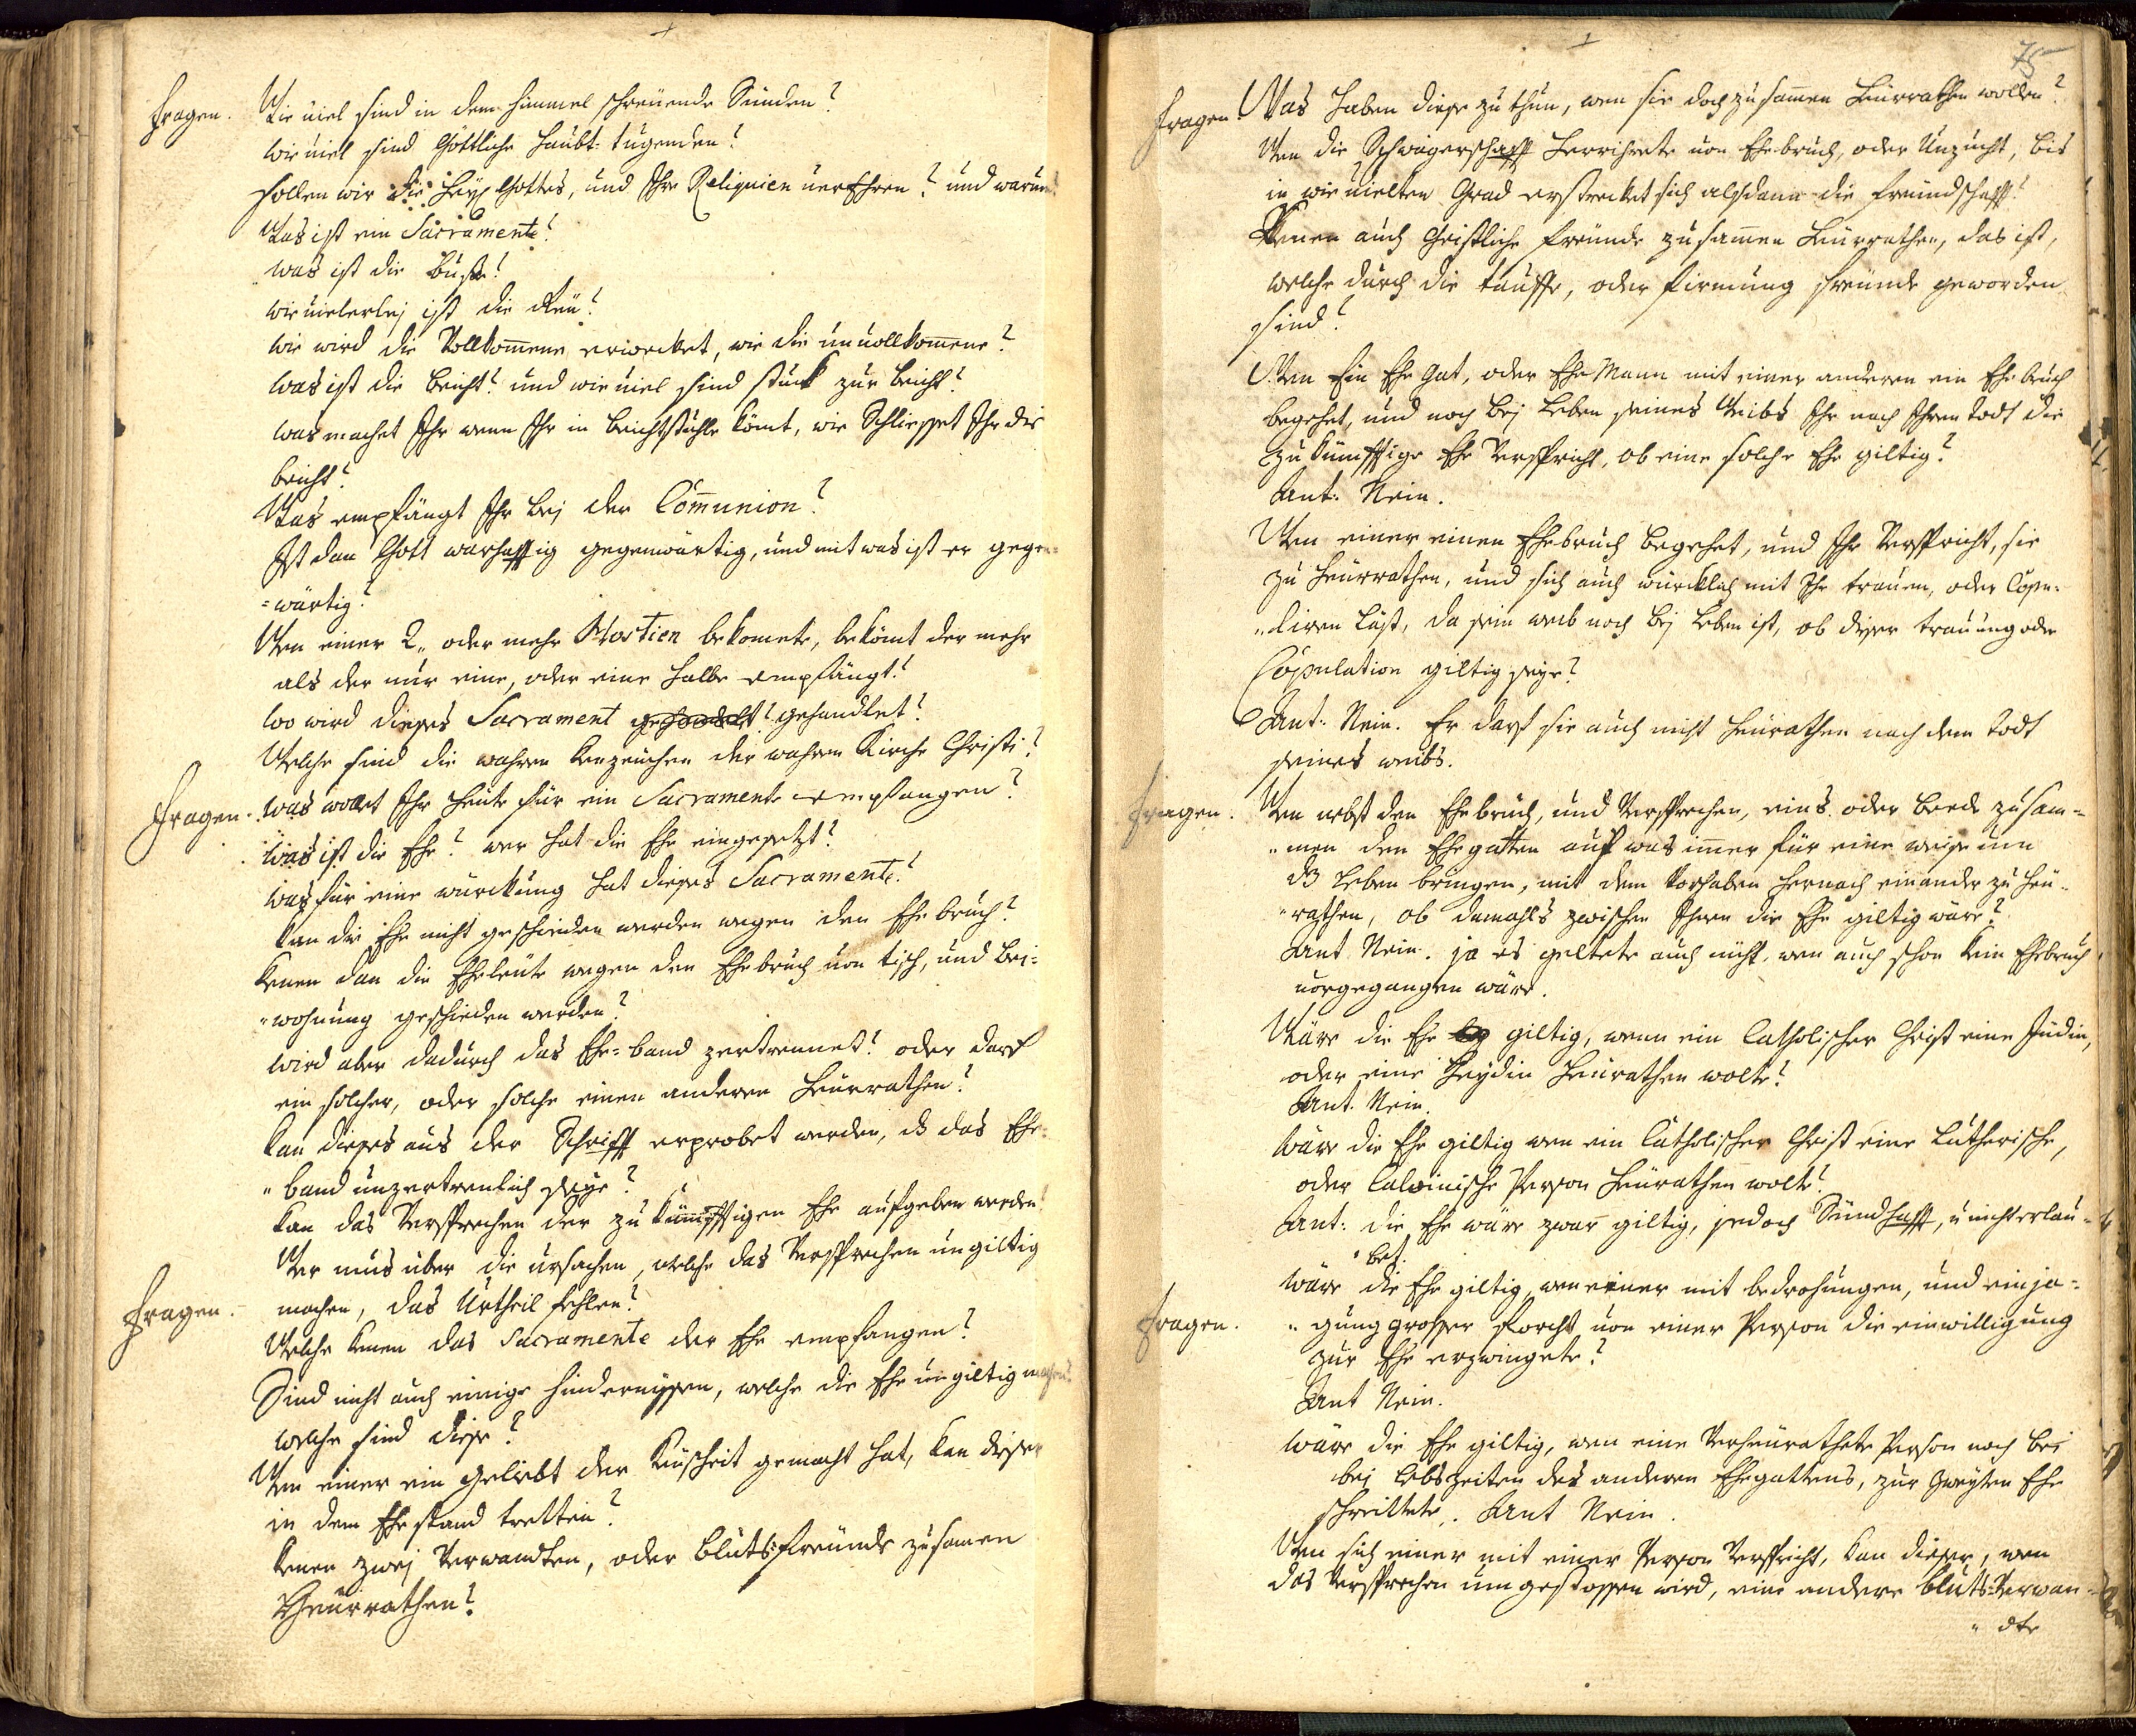 Fragen. Wie viel sind in dem Himmel schreüende Sünden?
Wie viel sind Göttliche Haubt-tugenden?
Sollen wir die Heyl: Gottes, und Ihre Reliquien verEhren? und warum?
Was ist ein Sacramente?
Was ist die Buße?
Wie vielerley ist die Reü?
Wie wird die Vollkom̄ene erwecket, wie die unvollkom̄ene?
Was ist die Beicht? und wie viel sind stuck zur beicht?
Was machet Ihr wenn Ihr in beichtstuhle kom̄t, wie Schliesset Ihr die
beicht?
Was empfängt Ihr bej der Com̄union?
Ist dan Gott warhafftig gegenwärtig, und mit was ist er gegen=
=wärtig?
Wen einer 2„ oder mehr Hostien bekomete, bekom̄t der mehr
als der nur eine, oder eine halbe empfängt?
Wo wird dieses Sacrament gehandelt? gehandlet?
Welche sind die wahren Kenzeichen der wahren Kirche Christi?
Fragen. Was wollet Ihr heüte für ein Sacramente empfangen?
Was ist die Ehe? wer hat die Ehe eingesetzt?
Was für eine würckung hat dieses Sacramente?
Kan die Ehe nicht geschieden werden wegen den Ehebruch?
Kenen dan die Eheleüte wegen den Ehebruch von tisch, und bei=
„wohnung geschieden werden?
Wird aber dadurch das Ehe=band zertrennet? oder darf
ein solcher, oder solche einen anderen Heürrathen?
Kan dieses aus der Schrifft erprobet werden, ds das Ehe=
„band unzertrenlich seye?
Kan das Versprechen der zukümfftigen Ehe aufgeben werden?
Wer mus über die ursachen, welche das Versprechen ungiltig
Fragen. machen, das Urtheil fehlen?
Welche kenen das Sacramente der Ehe empfangen?
Sind nicht auch einige hindernüssen, welche die Ehe ungiltig machen?
welche sind diese?
Wen einer ein Geliebt der Keüscheit gemacht hat, kan dieser
in dem Ehestand tretten?
Kenen zwej Verwandten, oder blutsfreünde zusamen
Heürrathen?
75
Fragen. Was haben diese zu thun, wen sie doch zusam̄en Heürrathen wollen?
Wen die Schwägerschafft herrihrete von Ehebruch, oder Unzucht, bis
in wie vielten Grad erstrecket sich alsdann die freündschafft?
Kenen auch Geistliche freünde zusam̄en Heürrathen, das ist,
welche durch die tauffe, oder firmung freünde geworden
sind?
Wen Ein Ehe Gat, oder Ehe Mann mit einer anderen ein Ehebruch
begehet, und noch bej Leben seines Weibs Ihr nach Ihren Todt die
zukümfftige Ehe Verspricht, ob eine solche Ehe giltig?
Ant: Nein.
Wen einer einen Ehebruch begehet, und Ihr Verspricht, sie
zu Heürrathen, und sich auch würcklich mit Ihr trauen, oder Copu=
„liren läst, da sein weib noch bej Leben ist, ob dieser trauung oder
Copulation giltig seye?
Ant: Nein. Er darf sie auch nicht Heürathen nach dem Todt
seines weibs.
Fragen. Wen nebst den Ehebruch, und Versprechen, eins oder beede zusam=
„men den Ehegatten auf was im̄er für eine weise um
ds Leben bringen, mit dem Vorhaben hernach einander zu Heü=
„rathen, ob damahls zwischen Ihnen die Ehe giltig wäre?
Ant Nein. ja es geltete auch nicht, wen auch schon kein Ehebruch
vorgegangen wäre.
Wäre die Ehe giltig, wenn ein Catholischer Christ eine Jüdin,
oder eine Heydin Heürathen wolte?
Ant. Nein.
Wäre die Ehe giltig wen ein Catholischer Christ eine Lutherische,
oder Calvinische Person Heürathen wolte?
Ant: die Ehe wäre zwar giltig, jedoch Sündhafft, u nicht erlau=
„bet.
Wäre die Ehe giltig, wen einer mit bedrohungen, und einja=
Fragen. „gung grosser Forcht von einer Person die einwilligung
zur Ehe erzwingete?
Ant Nein.
Wäre die Ehe giltig, wen eine Verheürathete Person noch bei
bej Lebszeiten des anderen Ehegattens, zur Zweyten Ehe
schreittete. Ant Nein.
Wen sich einer mit einer Person Verspricht, kan dieser, wen
das Versprechen umgestossen wird, eine andere bluts=Verwan=
„dte